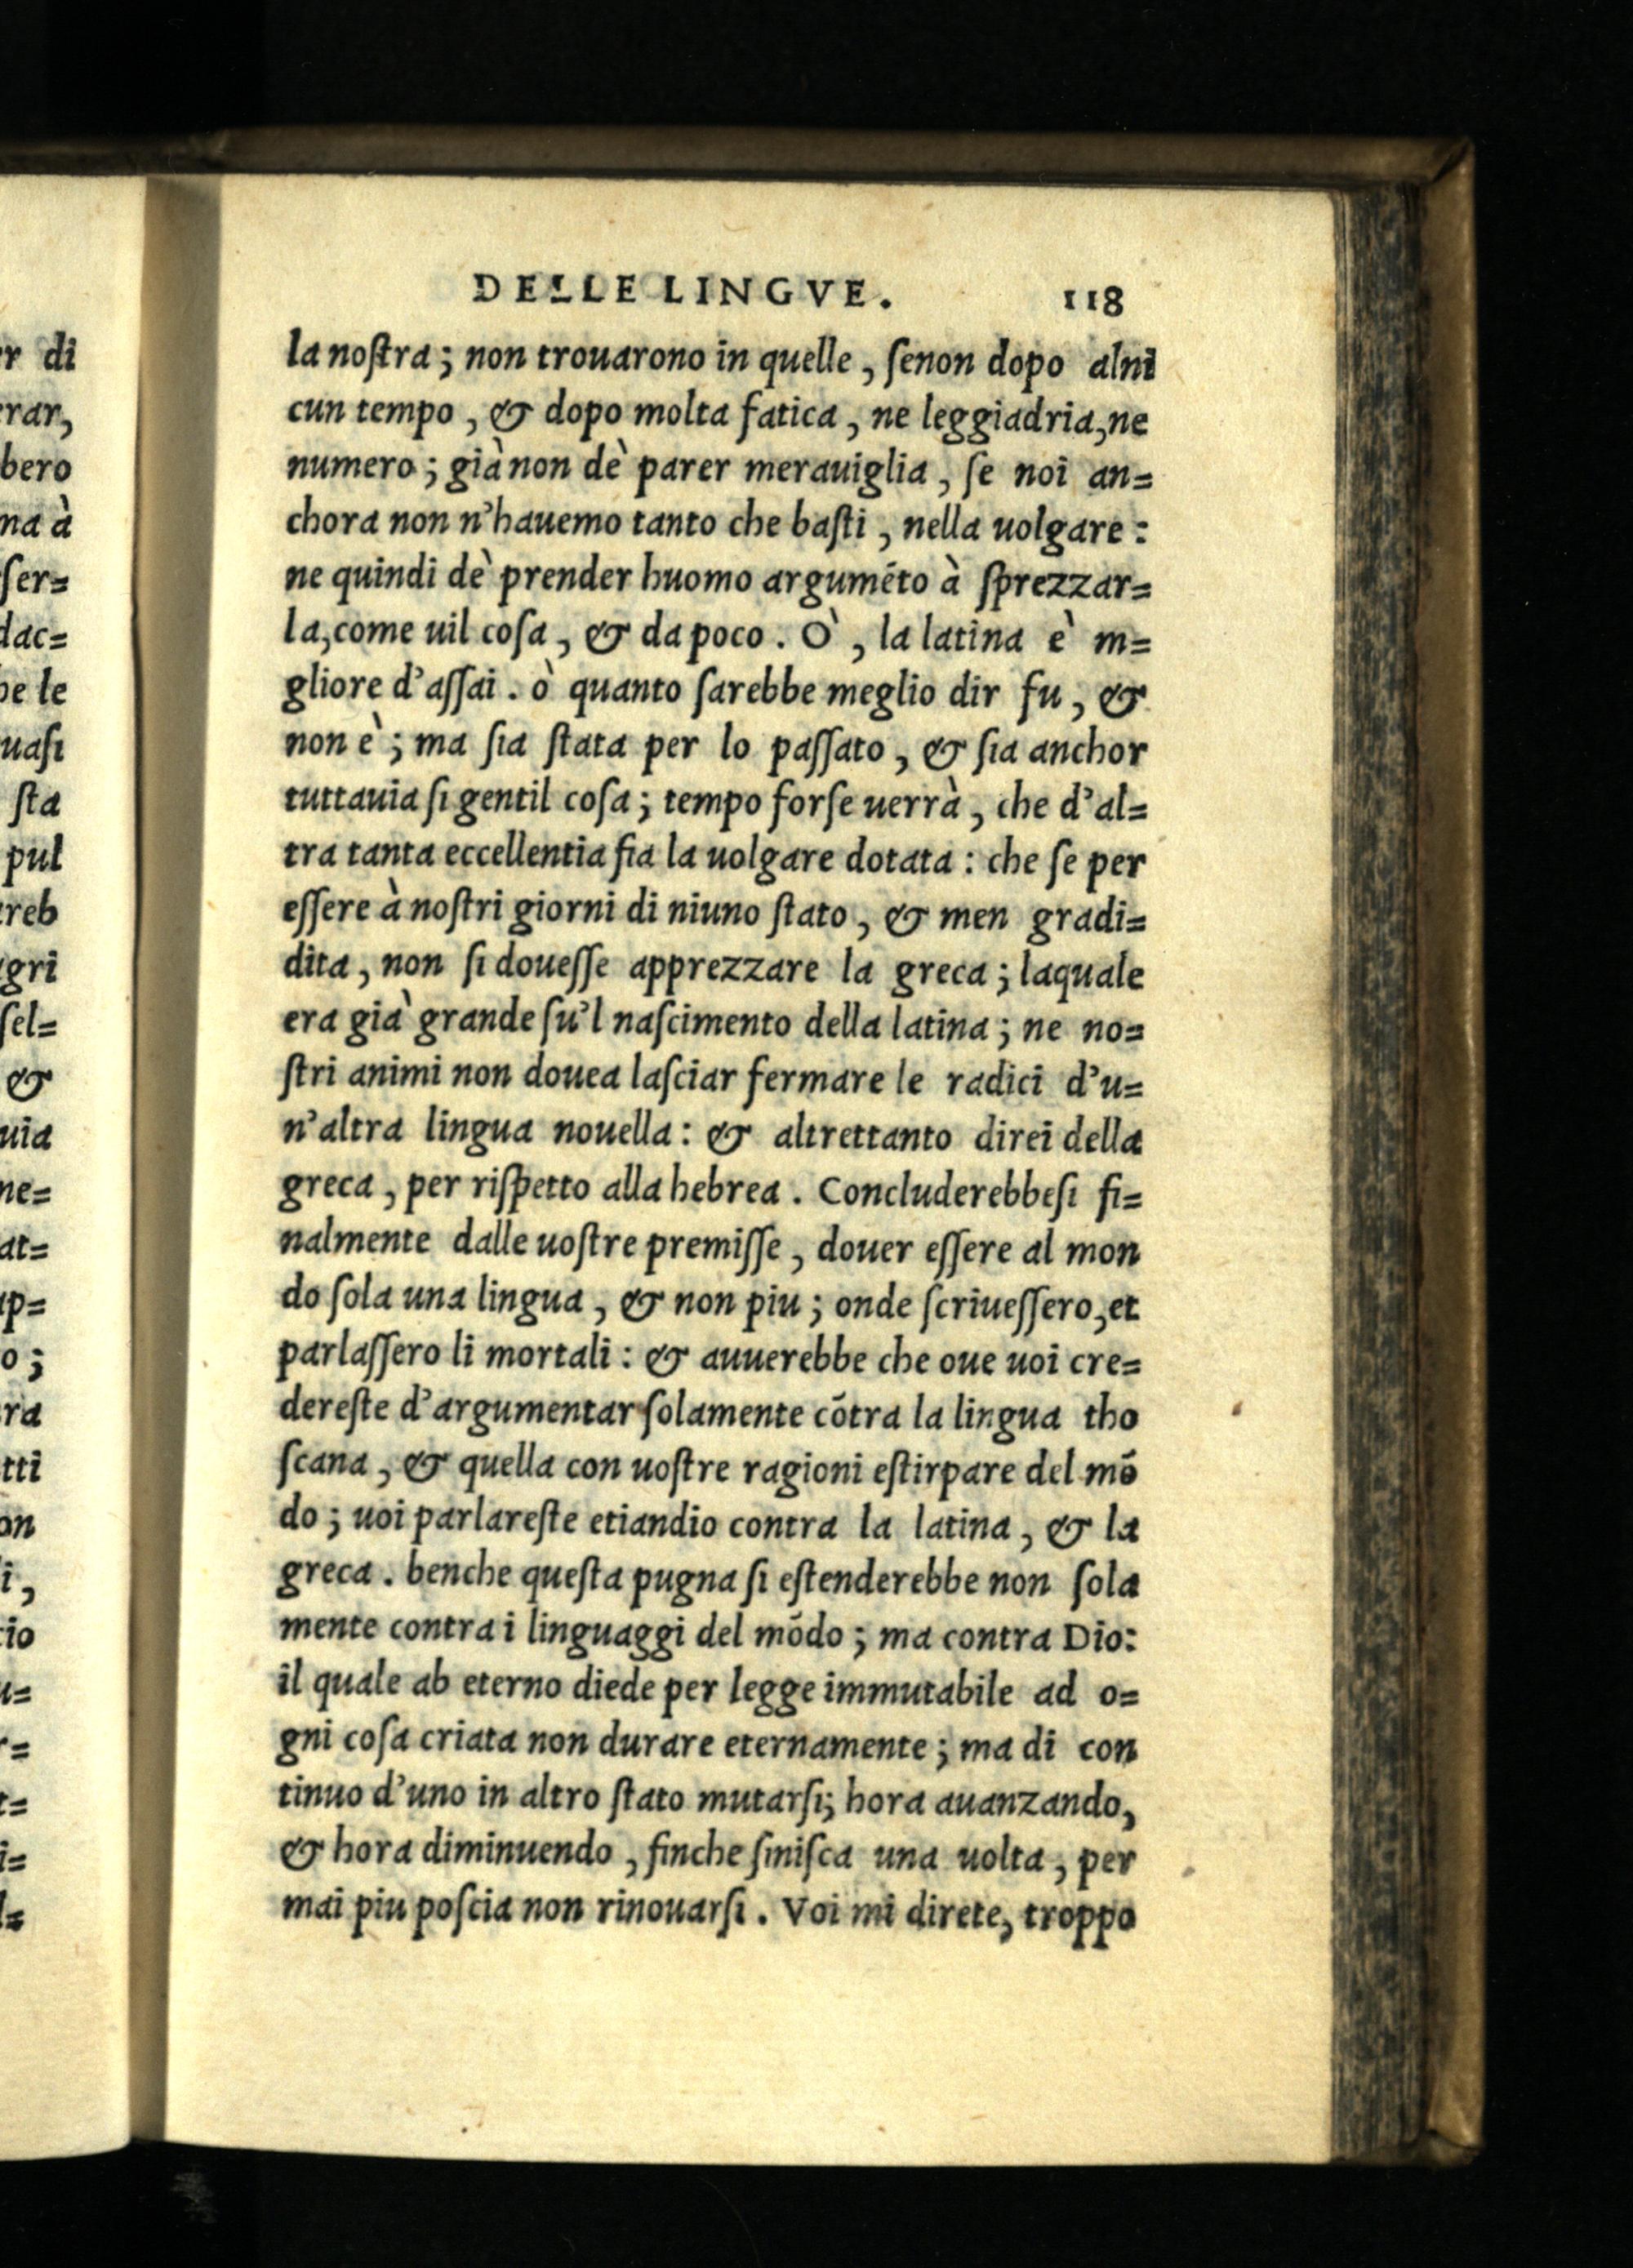 DELLE LINGVE. 118
la noſtra; non trouarono in quelle, ſenon dopo alni
cun tempo, & dopo molta fatica, ne leggiadria, ne
numero; già non dè parer merauiglia, ſe noi an=
chora non n'hauemo tanto che baſti, nella uolgare:
ne quindi dè prender huomo argumēto à ſprezzar=
la, come uil coſa, & da poco. Ò, la latina è m=
gliore d'aſſai. ò quanto ſarebbe meglio dir fu, &
non è; ma ſia ſtata per lo paſſato, & ſia anchor
tuttauia ſi gentil coſa; tempo forſe uerrà, che d'al=
tra tanta eccellentia fia la uolgare dotata: che ſe per
eſſere à noſtri giorni di niuno ſtato, & men gradi=
dita, non ſi doueſſe apprezzare la greca; laquale
era già grande ſu'l naſcimento della latina; ne no=
ſtri animi non douea laſciar fermare le radici d'u=
n'altra lingua nouella: & altrettanto direi della
greca, per riſpetto alla hebrea. Concluderebbeſi fi=
nalmente dalle uoſtre premiſſe, douer eſſere al mon
do ſola una lingua, & non piu; onde ſcriueſſero, et
parlaſſero li mortali: & auuerebbe che oue uoi cre=
dereſte d'argumentar ſolamente cōtra la lingua tho
ſcana, & quella con uoſtre ragioni eſtirpare del mō
do; uoi parlareſte etiandio contra la latina, & la
greca. benche queſta pugna ſi eſtenderebbe non ſola
mente contra i linguaggi del mōdo; ma contra Dio:
il quale ab eterno diede per legge immutabile ad o=
gni coſa criata non durare eternamente; ma di con
tinuo d'uno in altro ſtato mutarſi; hora auanzando,
& hora diminuendo, finche finiſca una uolta, per
mai piu poſcia non rinouarſi. Voi mi direte, troppo